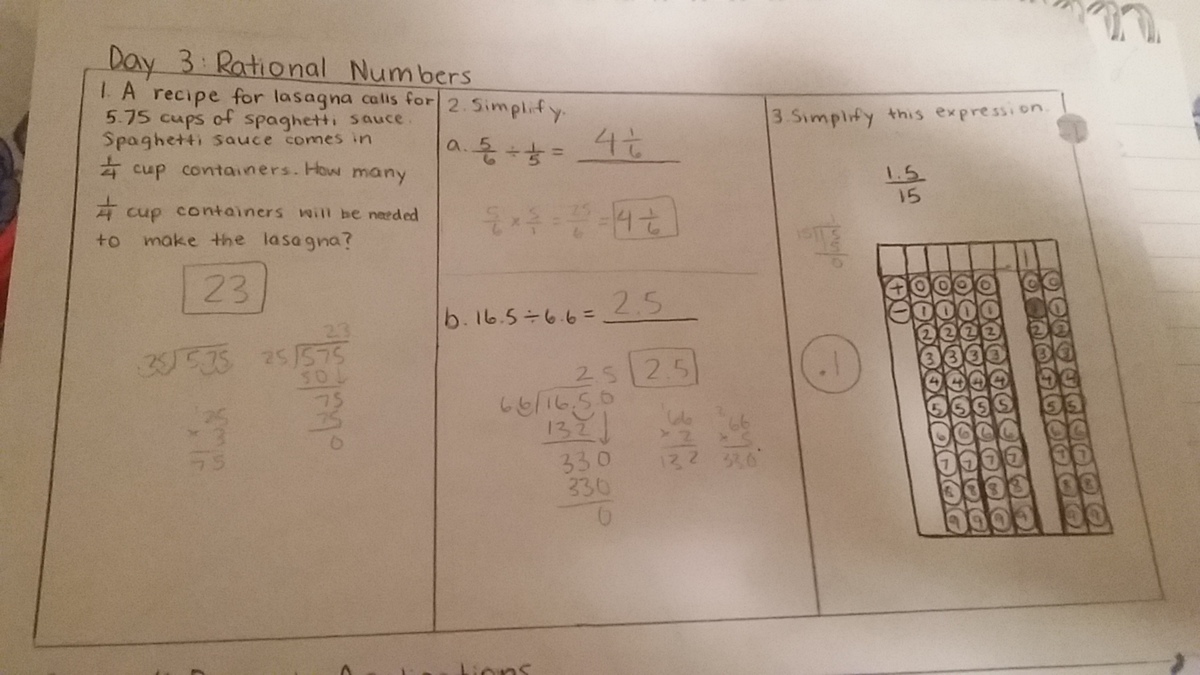 Day 3: Rational Numbers
1. A recipe for lasagna calls for
5.75 cups of spaghetti sauce.
Spaghetti sauce comes in
1/4 cup containers. How many
1/4 cup containers will be needed
to make the lasagna?
23
23
25)575
50↓
75
75
0
25
× 3
75
2. Simplify.
a. 5/6 ÷ 1/5 = 4 1/6
5/6 × 5/1 = 25/6 = 4 1/6
b. 16.5 ÷ 6.6 = 2.5
2.5
2.5
66)16.50
132↓
330
330
0
66
× 2
132
2
66
× 5
330
3. Simplify this expression.
1.5/15
1
15)1.5
15
0
.1
. 1
+ 0 0 0 0 0 0
- 1 1 1 1 1
2 2 2 2 2 2
3 3 3 3 3 3
4 4 4 4 4 4
5 5 5 5 5 5
6 6 6 6 6 6
7 7 7 7 7 7
8 8 8 8 8 8
9 9 9 9 9 9